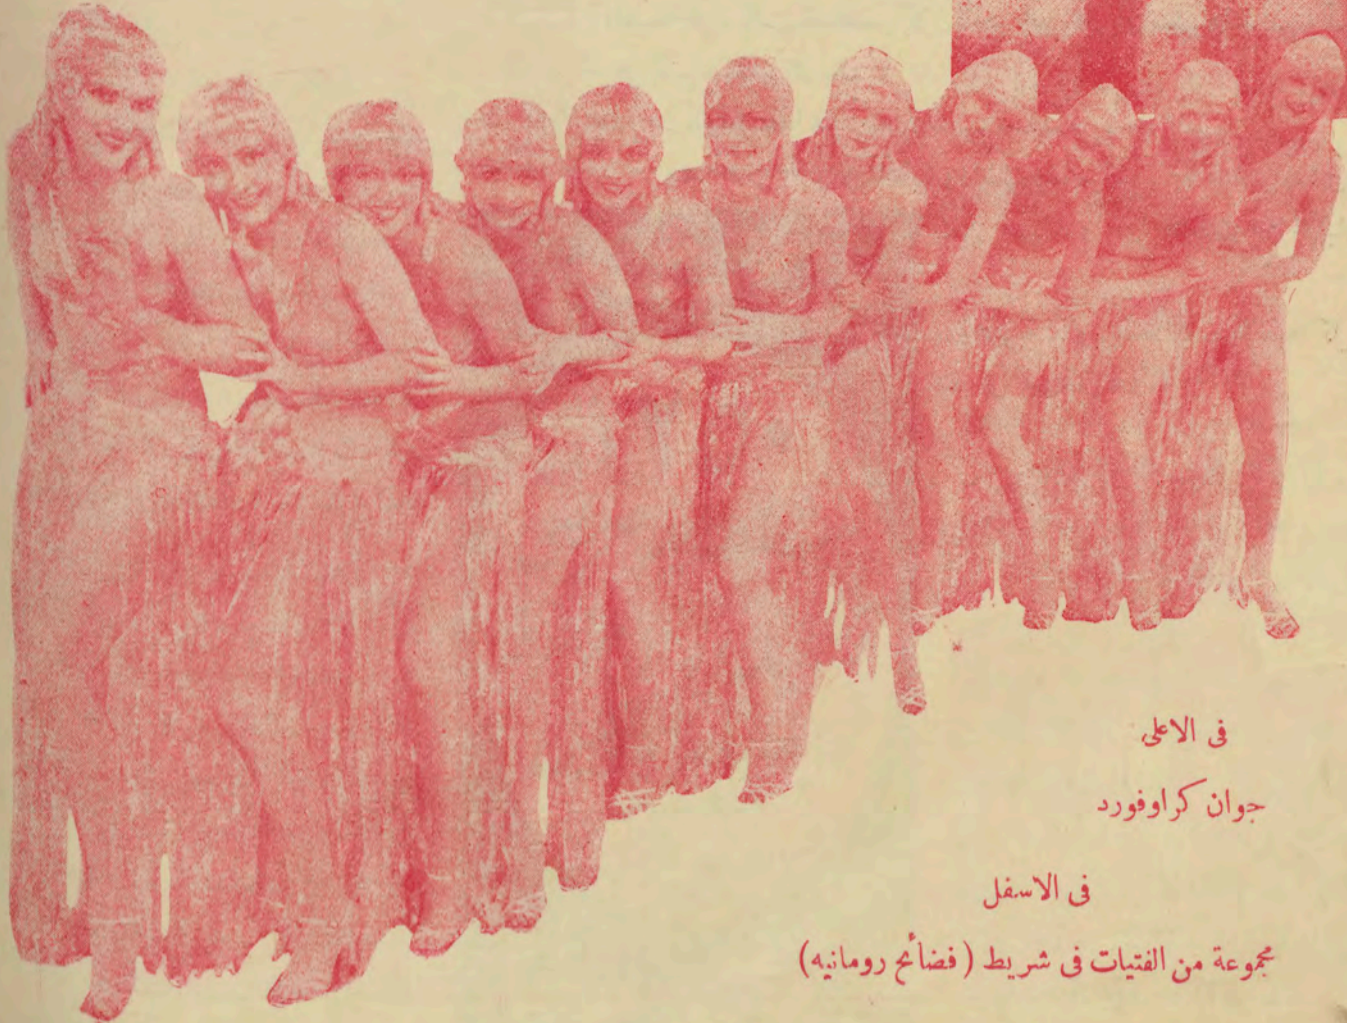 فى الاعلى
جوان كراوفورد
فى الاسفل
مجموعة من الفتيات فى شريط (فضائح رومانيه)